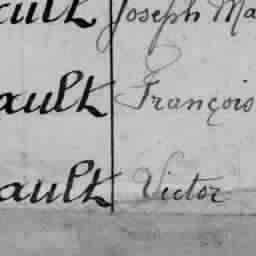 ault Joseph Ma
ault François
ault Victor